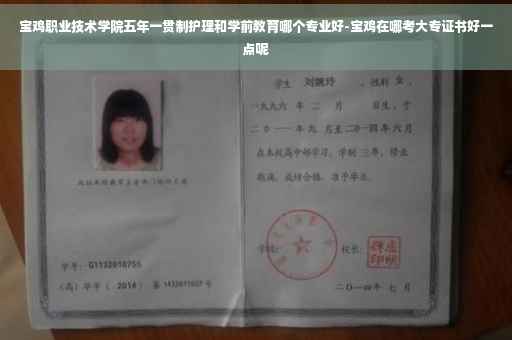 宝鸡职业技术学院五年一贯制护理和学前教育哪个专业好-宝鸡在哪考大专证书好一
点呢
学生 刘婉玲 ，性别 女 ，
一九九六 年 二 月 日生，于
二〇一一年九月至二〇一四年六月
在本校高中部学习，学制 三年，修业
期满，成绩合格，准予毕业。
学校：
校长：
学号：G1132010755
（高）毕字（ 2014 ）第 1432011027 号
二〇一四年 七 月